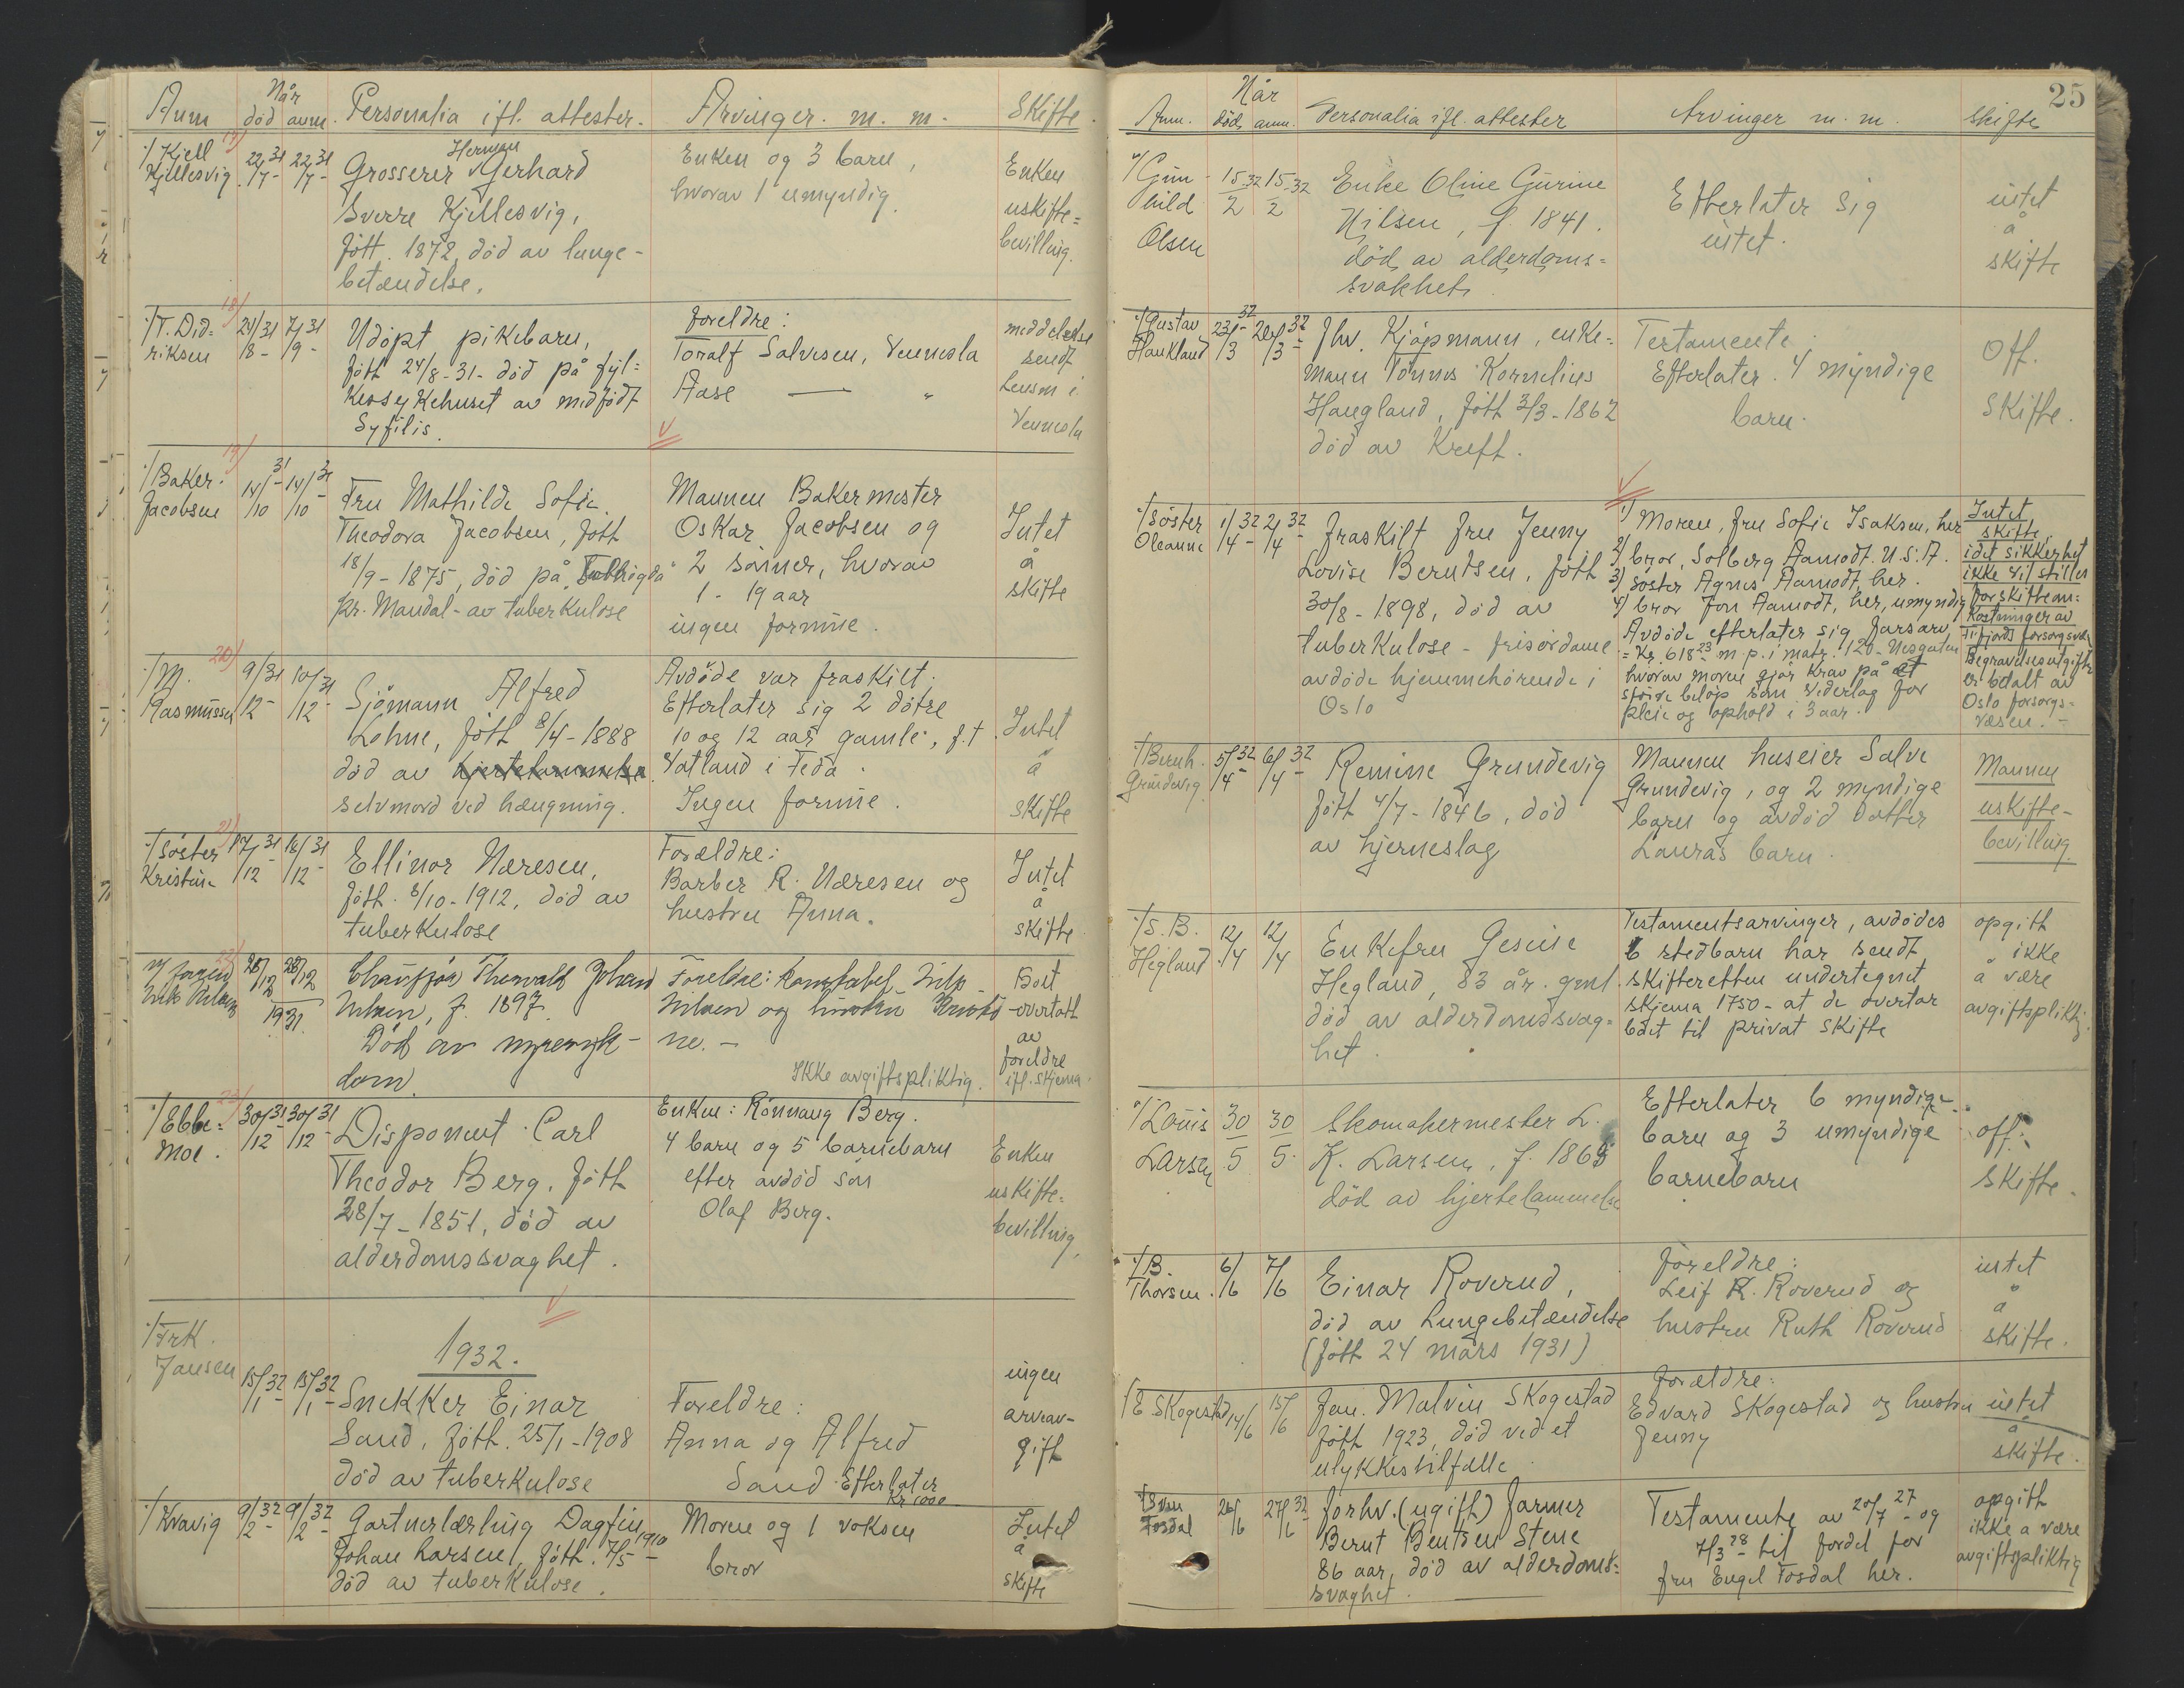 Anm
Når
død anm.
Personalia ifl. attester.
Arvinger. m. m.
Skifte.
17)
v/ Kjell
Kjellesvig
22/7-31 22/7-31
Grosserer Herman Gerhard
Sverre Kjellesvig,
født. 1872, død av lunge-
betændelse.
Enken og 3 barn,
hvorav 1 umyndig.
Enken
uskifte=
bevilling.
18)
v/T. Did=
riksen
24/8-31 7/9-31
Udøpt pikebarn,
født 24/8-31- død på fyl=
kessykehuset av medfødt
Syfilis.
foreldre:
Toralf Salvesen, Vennesla
Aase — "
meddelelse
sendt
Lensm i
Vennesla
19)
v/Baker.
Jacobsen
14/10-31 14/10-31
Fru Mathilde Sofie
Theodora Jacobsen, født
18/9-1875, død på
pr. Mandal- av tuberkulose
Mannen Bakermester
Oskar Jacobsen og
2 sønner, hvorav
1 - 19 aar
ingen formue.
Intet
å
skifte
20)
v/M.
Rasmussen
9/12-31 10/12-31
Sjømann Alfred
Lohne, født 8/4-1888
død av hjertelammelse
selvmord ved hængning.
Avdøde var fraskilt.
Efterlater sig 2 døtre
10 og 12 aar gamle, f.t.
Vatland i Feda.
Ingen formue.
Intet
å
skifte
21)
v/søster
Kristine
17/12-31 18/12-31
Ellinor Næresen,
født. 8/10-1912, død av
tuberkulose
Forældre:
Barber R. Næresen og
hustru Anna.
Intet
å
skifte
22)
28/12 28/12
1931.
Chauffør Thorvald Johan
Nilsen, f. 1897.
Død av nyresyk-
dom.
Foreldre: Konstabel Nils
Nilsen og hustru
ne. -
Ikke avgiftspliktig.
Boet
overtatt
av
foreldre
ifl. skjema.
23)
v/Ebbe=
Moe.
30/12-31 30/12-31
Disponent Carl
Theodor Berg. født
28/7-1851, død av
alderdomssvaghet.
Enken: Rønnaug Berg.
4 barn og 5 barnebarn
efter avdød søn
Olaf Berg.
Enken
uskifte=
bevilling,
v/Frk.
Jansen
1932.
15/1-32 15/1-32
Snekker Einar
Sand, født. 25/1-1908
død av tuberkulose
Foreldre:
Anna og Alfred
Sand. Efterlater
Kr 1000
ingen
arvav-
gift
v/Kravig
9/2-32 9/2-32
Gartnerlærling Dagfin
Johan Larsen, født. 7/5-1910
død av tuberkulose.
Moren og 1 voksen
bror
Intet
å
skifte
25
Anm.
Når
død, anm.
Personalia ifl. attester
Arvinger m. m.
Skifte
v/Gun-
hild
Olsen
15/2 32 15/2 32
Enke Oline Gurine
Nilsen, f. 1841.
død av alderdoms=
svakhet.
Efterlater sig
intet.
intet
å
skifte
v/Gustav
Haukland
23/3-32 28/3-32
Fhv. Kjøpmann, enke=
mann Tønnes Kornelius
Haugland, født 3/3-1862
død av Kreft.
Testamente.
Efterlater. 4 myndige
barn.
Off.
skifte.
v/søster
Oleanne
1/4-32 2/4-32
fraskilt fru Jenny
Lovise Berntsen, født
30/8-1898, død av
tuberkulose - frisørdame
avdøde hjemmehørende i
Oslo
1) Moren, fru Sofie Isaksen, her
2) bror, Solberg Aamodt. U.S.A.
3) søster Agnes Aamodt, her.
4) bror Jon Aamodt, her, umyndig
Avdøde efterlater sig farsarv
= Kr. 618 23 m.p. i matr. 120- Nesgaten
hvorav moren gjør krav på et
større beløp som vederlag for
pleie og ophold i 3 aar.
Intet
skifte,
idet sikkerhet
ikke vil stilles
for skiftean=
kostninger av
forsorgsv.
Begravelsesutgifter
er betalt av
Oslo forsorgs=
væsen. -
v/Bernh.
Grundevig
5/4-32 6/4-32
Remine Grundevig
født 4/7-1846, død
av hjerneslag
Mannen huseier Salve
Grundevig, og 2 myndige
barn og avdød datter
Lauras barn.
Mannen
uskifte-
bevilling.
v/S. B.
Hegland
12/4 12/4
Enkefru Gesine
Hegland, 83 år. gml.
død av alderdomssvag=
het.
Testamentsarvinger, avdødes
6 stedbarn har sendt
skifteretten undertegnet
skjema 1750- at de overtar
boet til privat skifte
opgitt
ikke
å være
avgiftspliktig.
v/Louis
Larsen
30/5 30/5
Skomakermester L.
K. Larsen, f. 1868
død av hjertelammelse
Efterlater 6 myndige
barn og 3 umyndige
barnebarn
off.
skifte.
v/B.
Thorsen.
6/6 7/6
Einar Roverud,
død av Lungebetændelse
(født 24 mars 1931)
foreldre:
Leif R. Roverud og
hustru Ruth Roverud
intet
å
skifte.
v/E Skogestad
14/6 15/6
Jen. Malvin Skogestad
født 1923, død ved et
ulykkestilfælle.
forældre:
Edvard Skogestad og hustru
Jenny
intet
å
skifte.
v/Sven
Fosdal
26/6 27/6 32
forhv. (ugift) farmer
Bernt Bentsen Stene
86 aar, død av alderdoms=
svaghet.
Testamente av 20/7-27 og
7/3-28 til fordel for
fru Engel Fosdal her.
opgitt
ikke å være
avgiftspliktig